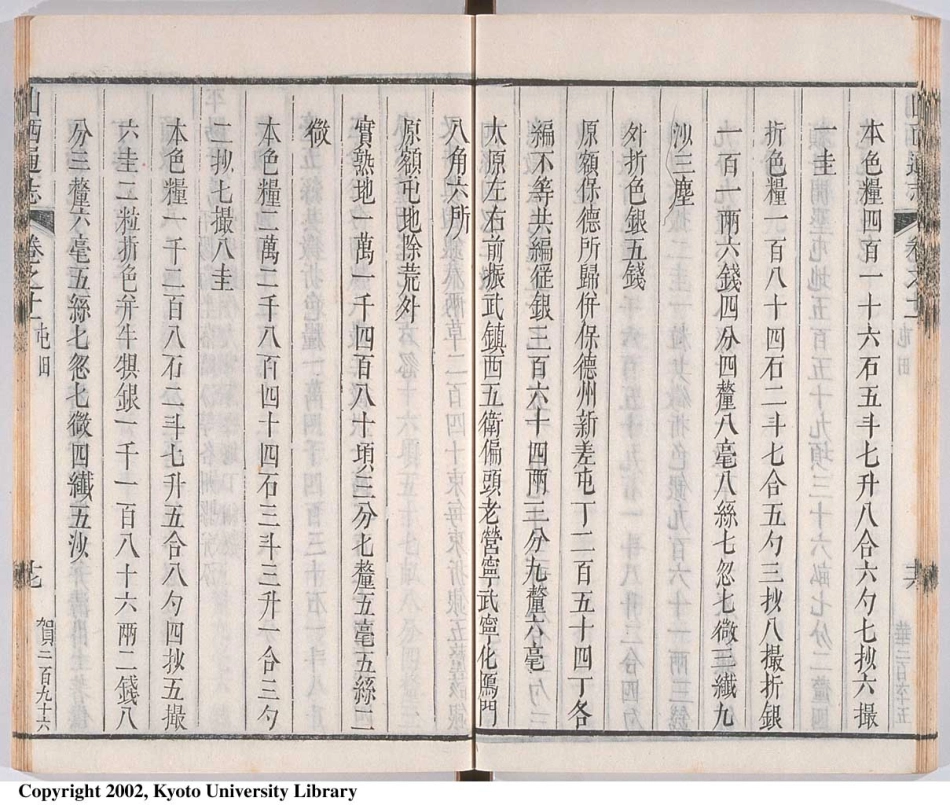 本色糧四百一十六石五斗七升八合六勺七抄六撮
一圭
折色糧一百八十四石二斗七合五勺三抄八撮折銀
一百一九兩六錢四分四釐八毫八絲七忽七微三纖九
沙三塵
外折色銀五錢
原額保德所歸併保德州新差屯丁二百五十四丁各
編不等共編徭銀三百六十四兩三分九釐六毫
太原左右前振武鎮西五衛偏頭老營寧武寧化鴈門
八角六所
原額屯地除荒外
實熟地一萬一千四百八十頃三分七釐五毫五絲二
微
本色糧二萬二千八百四十四石三斗三升一合三勺
二抄七撮八圭
本色糧一千二百八石二斗七升五合八勺四抄五撮
六圭二粒折色并牛犋銀一千一百八十六兩二錢八
分三釐六毫五絲七忽七微四纖五沙
山西通志 卷之十一 屯田
賀二百九十六
Copyright 2002, Kyoto University Library